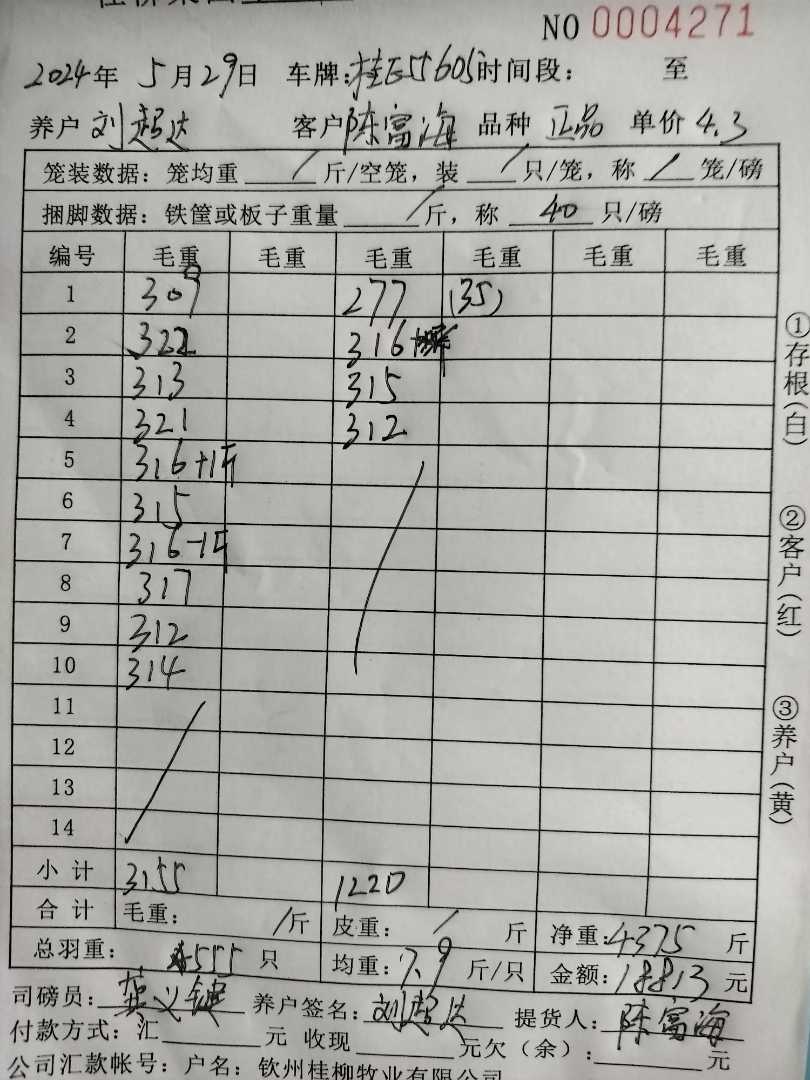 NO 0004271
2024年 5月29日 车牌:桂 时间段: 至
养户 刘超达 客户 陈富海 品种 正品 单价 4.3
笼装数据: 笼均重 / 斤/空笼, 装 / 只/笼, 称 / 笼/磅
捆脚数据: 铁筐或板子重量 / 斤, 称 40 只/磅
编号 毛重 毛重 毛重 毛重 毛重 毛重
1 309 277 (35)
2 322 316
3 313 315
4 321 312
5 316+1斤
6 315
7 316-1斤
8 317
9 312
10 314
11
12
13
14
小计 3155 1220
合计 毛重: /斤 皮重: / 斤 净重:4375 斤
总羽重: 555 只 均重: 7.9 斤/只 金额:18813 元
司磅员: 养户签名: 刘超达 提货人: 陈富海
付款方式: 汇 元 收现 元欠(余): 元
公司汇款帐号: 户名: 钦州桂柳牧业有限公司
①存根(白)
②客户(红)
③养户(黄)